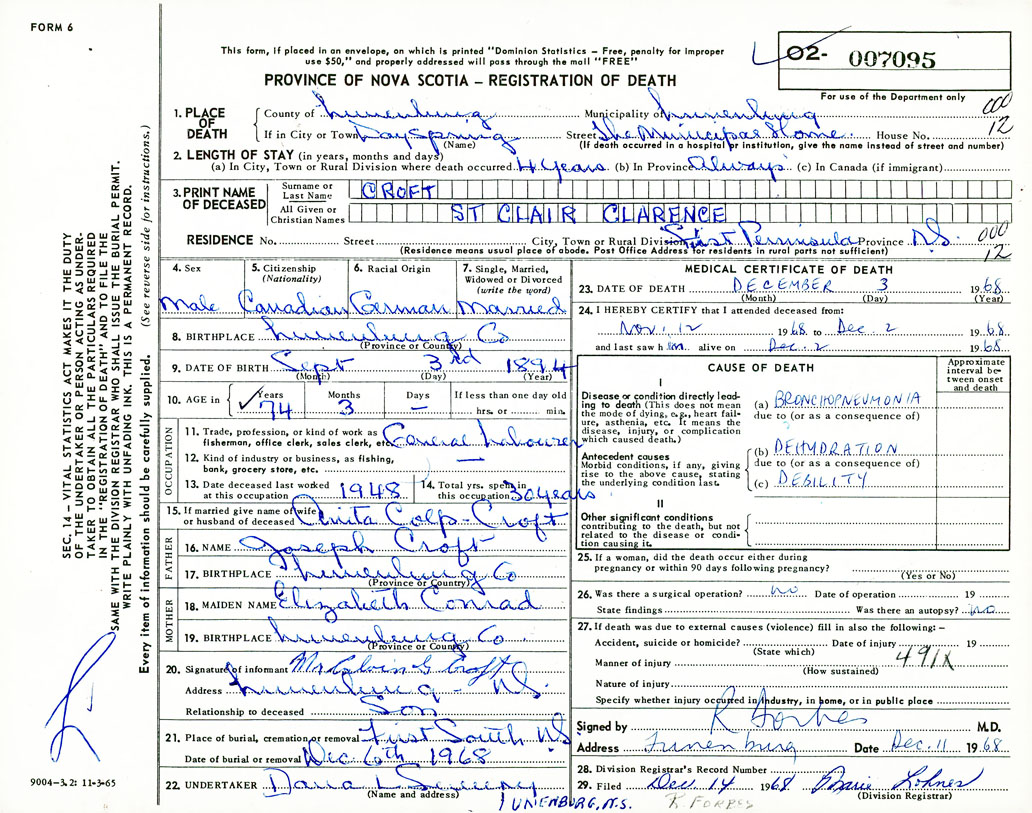 FORM 6
This form, if placed in an envelope, on which is printed "Dominion Statistics – Free, penalty for improper
use $50," and properly addressed will pass through the mail "FREE"
O2- 007095
For use of the Department only
PROVINCE OF NOVA SCOTIA – REGISTRATION OF DEATH
000
12
1. PLACE OF DEATH
County of Lunenburg Municipality of Lunenburg
If in City or Town DaySpring Street The Municipal Home House No.
(Name) (If death occurred in a hospital or institution, give the name instead of street and number)
2. LENGTH OF STAY (in years, months and days)
(a) In City, Town or Rural Division where death occurred 4 years (b) In Province Always (c) In Canada (if immigrant)
3. PRINT NAME OF DECEASED
Surname or Last Name CROFT
All Given or Christian Names ST CLAIR CLARENCE
RESIDENCE No. Street City, Town or Rural Division First Peninsula Province N.S.
(Residence means usual place of abode. Post Office Address for residents in rural parts not sufficient)
000
12
4. Sex 5. Citizenship (Nationality) 6. Racial Origin 7. Single, Married, Widowed or Divorced (write the word)
Male Canadian German Married
8. BIRTHPLACE Lunenburg Co
(Province or Country)
9. DATE OF BIRTH Sept 3rd 1894
(Month) (Day) (Year)
10. AGE in Years Months Days If less than one day old
74 3 – hrs. or min.
OCCUPATION
11. Trade, profession, or kind of work as
fisherman, office clerk, sales clerk, etc. General Labourer
12. Kind of industry or business, as fishing,
bank, grocery store, etc. —
13. Date deceased last worked at this occupation 1948
14. Total yrs. spent in this occupation 30 years
15. If married give name of wife
or husband of deceased Anita Colp-Croft
FATHER
16. NAME Joseph Croft
17. BIRTHPLACE Lunenburg Co
(Province or Country)
MOTHER
18. MAIDEN NAME Elizabeth Conrad
19. BIRTHPLACE Lunenburg Co.
(Province or Country)
20. Signature of informant Mr Calvin G Croft
Address Lunenburg - N.S.
Relationship to deceased Son
21. Place of burial, cremation or removal First South N.S
Date of burial or removal Dec 6th 1968
22. UNDERTAKER Dana L Sweeney
(Name and address)
LUNENBURG, N.S.
MEDICAL CERTIFICATE OF DEATH
23. DATE OF DEATH DECEMBER 3 1968
(Month) (Day) (Year)
24. I HEREBY CERTIFY that I attended deceased from:
Nov. 12 1968 to Dec. 2 1968
and last saw him alive on Dec. 2 1968
CAUSE OF DEATH
Approximate interval between onset and death
I
Disease or condition directly leading
to death (This does not mean
the mode of dying, e.g., heart failure,
asthenia, etc. It means the
disease, injury, or complication
which caused death.)
(a) BRONCHOPNEUMONIA
due to (or as a consequence of)
Antecedent causes
Morbid conditions, if any, giving
rise to the above cause, stating
the underlying condition last.
(b) DEHYDRATION
due to (or as a consequence of)
(c) DEBILITY
II
Other significant conditions
contributing to the death, but not
related to the disease or condition
causing it.
25. If a woman, did the death occur either during
pregnancy or within 90 days following pregnancy?
(Yes or No)
26. Was there a surgical operation? no Date of operation 19
State findings Was there an autopsy? no
27. If death was due to external causes (violence) fill in also the following: –
Accident, suicide or homicide? Date of injury 19
(State which)
491X
Manner of injury
(How sustained)
Nature of injury
Specify whether injury occurred in industry, in home, or in public place
Signed by R Forbes M.D.
Address Lunenburg Date Dec. 11 1968
28. Division Registrar's Record Number
29. Filed Dec 14 1968 Lohnes
(Division Registrar)
R. FORBES
SEC. 14 – VITAL STATISTICS ACT MAKES IT THE DUTY
OF THE UNDERTAKER OR PERSON ACTING AS UNDERTAKER
TO OBTAIN ALL THE PARTICULARS REQUIRED
IN THE "REGISTRATION OF DEATH" AND TO FILE THE
SAME WITH THE DIVISION REGISTRAR WHO SHALL ISSUE THE BURIAL PERMIT.
WRITE PLAINLY WITH UNFADING INK. THIS IS A PERMANENT RECORD.
Every item of information should be carefully supplied. (See reverse side for instructions.)
9004–3.2: 11-3-65